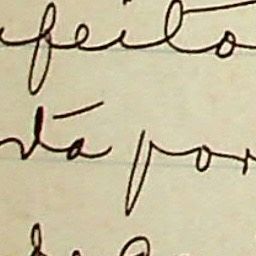 feito
tá por